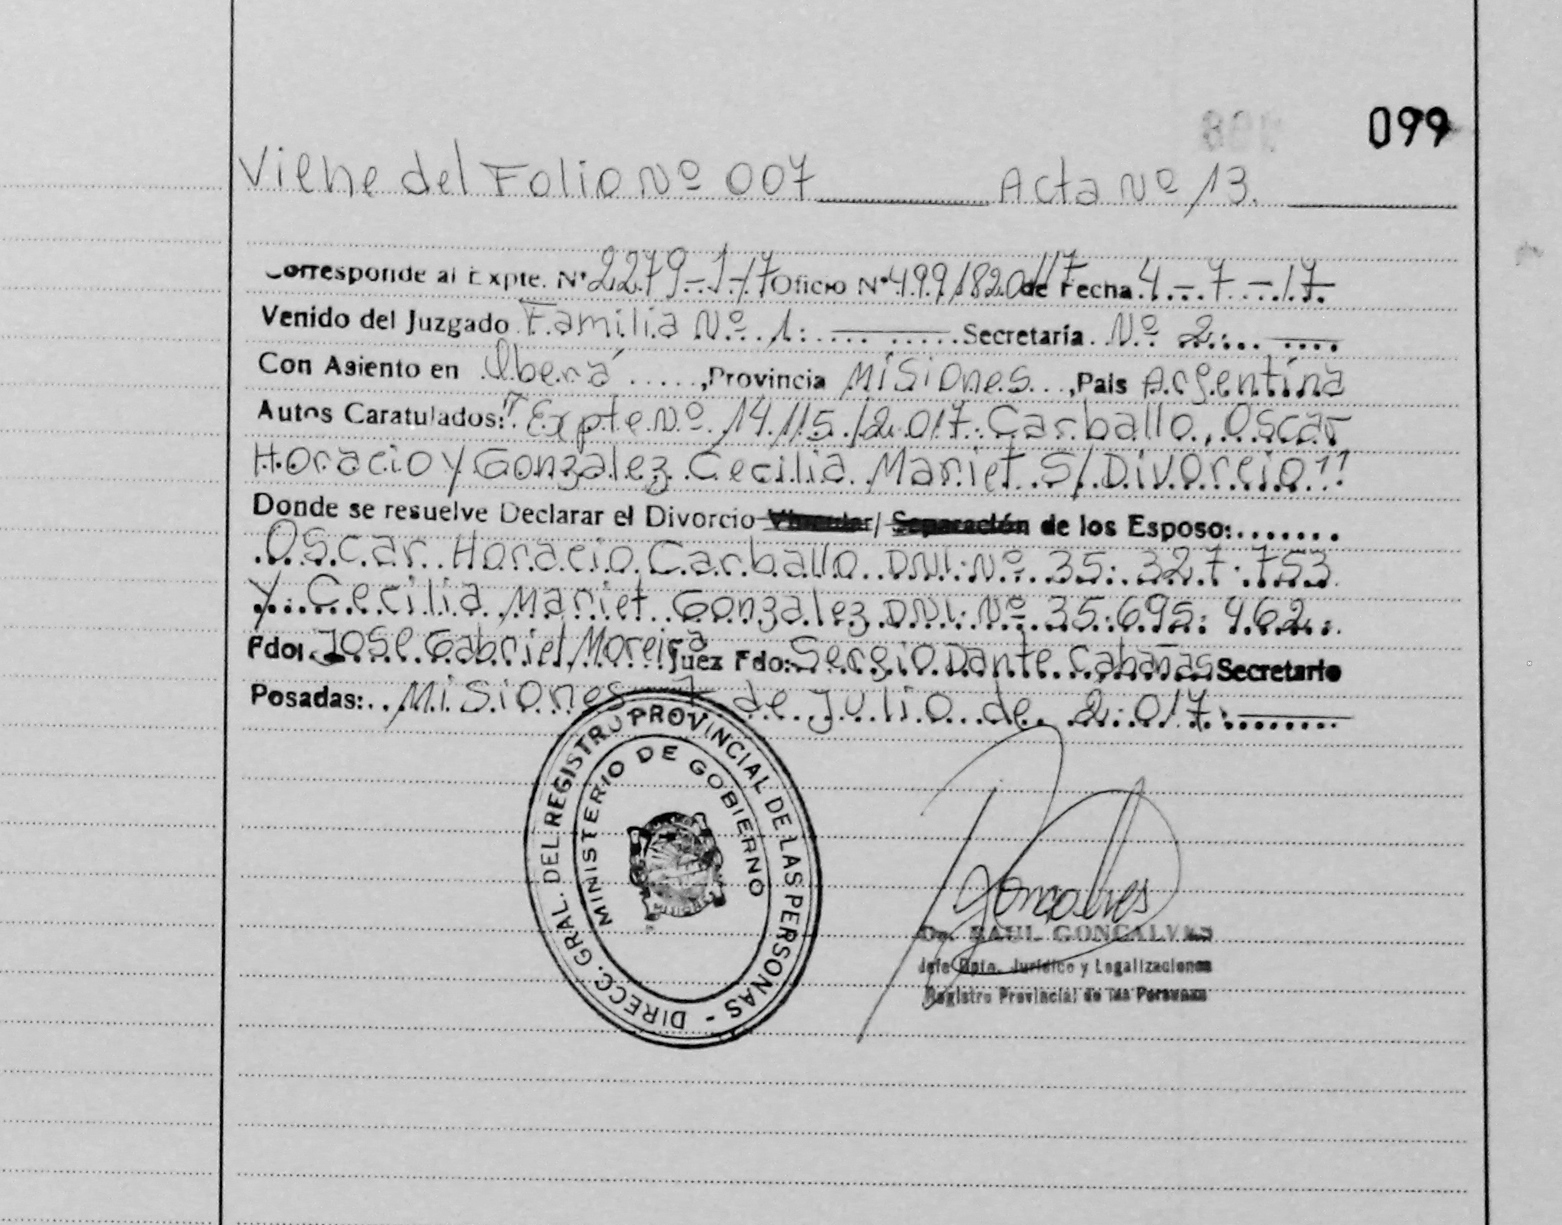 099
Viene del Folio Nº 007 Acta Nº 13.
Corresponde al Expte. Nº 2279-1-17 Oficio Nº 499/820/17 de Fecha 4-7-17-
Venido del Juzgado Familia Nº 1: Secretaría Nº 2
Con Asiento en Oberá, Provincia Misiones, País Argentina
Autos Caratulados: "Expte Nº 14115/2017. Carballo, Oscar
Horacio y Gonzalez Cecilia Mariet S/Divorcio"
Donde se resuelve Declarar el Divorcio Vincular/ Separación de los Esposo:
Oscar Horacio Carballo DNI: Nº 35.327.753
y Cecilia Mariet Gonzalez DNI: Nº 35.695.462
Fdo: Jose Gabriel Moreira Juez Fdo: Sergio Dante Cabañas Secretario
Posadas: Misiones 7 de Julio de 2.017.
DIRECC. GRAL. DEL REGISTRO PROVINCIAL DE LAS PERSONAS -
MINISTERIO DE GOBIERNO
Goncalves
Dr. RAUL GONCALVES
Jefe Dpto. Jurídico y Legalizaciones
Registro Provincial de las Personas